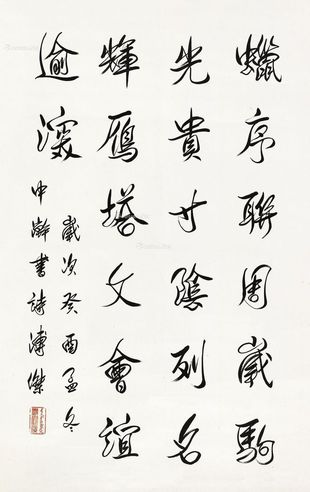 蠟序聯周歲駒
光貴寸陰列名
輝鴈塔文會誼
逾深
歲次癸酉孟冬
中澣書詩溥傑